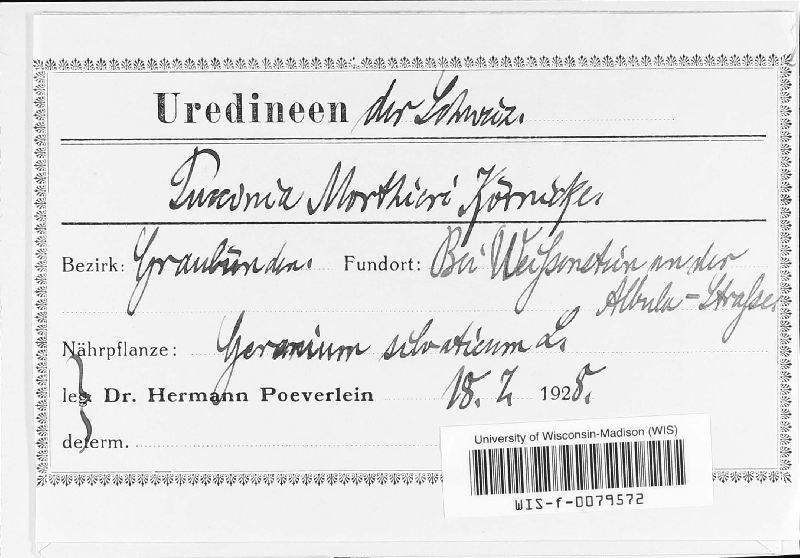 Uredineen der Schweiz.
Puccinia Morthieri Körnicke.
Bezirk: Graubünden. Fundort: Bei Weißenstein an der
Albula-Straße.
Nährpflanze: Geranium silvaticum L.
leg. Dr. Hermann Poeverlein 18. 7. 1928.
determ.
University of Wisconsin-Madison (WIS)
WIS-f-0079572